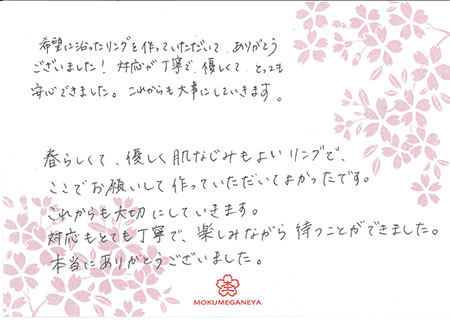 希望に沿ったリングを作っていただいて、ありがとう
ございました！対応が丁寧で、優しくて、とっても
安心できました。これからも大事にしていきます。
春らしくて、優しく肌なじみもよいリングで、
ここでお願いして作っていただいてよかったです。
これからも大切にしていきます。
対応もとても丁寧で、楽しみながら待つことができました。
本当にありがとうございました。
MOKUMEGANEYA